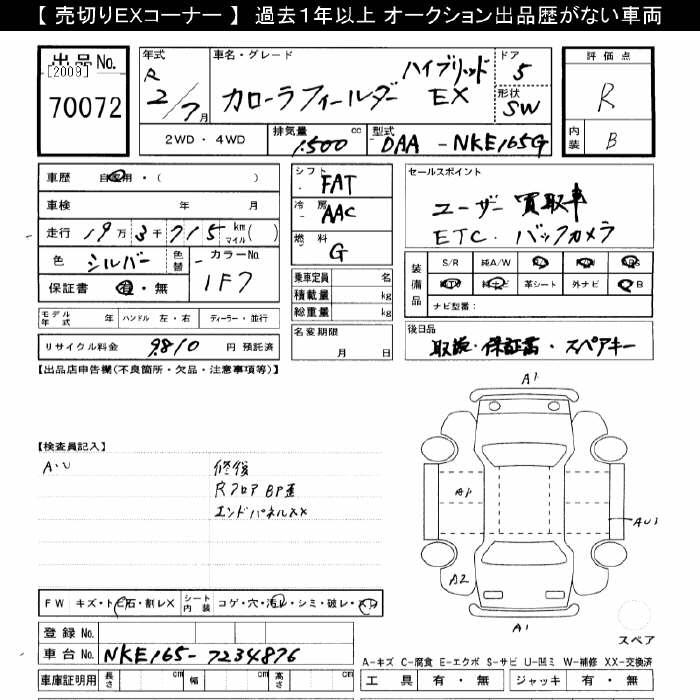 【 売切りEXコーナー 】 過去１年以上 オークション出品歴がない車両
出品No.
[2009]
70072
年式
R
2/7月
車名・グレード
カローラフィールダー
ハイブリッド
EX
ドア
5
形状
SW
評価点
R
内装
B
2WD・4WD
排気量
1500 cc
型式
DAA - NKE165G
車歴 自家用・( )
車検 年 月
走行 19万3千715 km マイル ( )
色 シルバー
色替
カラーNo.
1F7
保証書 有・無
シフト
FAT
冷房
AAC
燃料
G
乗車定員 名
積載量 kg
総重量 kg
名変期限
月 日
セールスポイント
ユーザー買取車
ETC. バックカメラ
装備品
S/R 純A/W
純ナビ 革シート 外ナビ
ナビ型番：
モデル年式 年 ハンドル 左・右 ディーラー・並行
リサイクル料金 9,810 円 預託済
後日品
取説・保証書・スペアキー
【出品店申告欄(不良箇所・欠品・注意事項等)】
【検査員記入】
A・U
修復
RフロアBP歪
エンドパネルXX
A1
A1
AU1
A2
A1
スペア
FW キズ・ト石・割レX
シート内装 コゲ・穴・汚レ・シミ・破レ・スレ
登録No.
車台No. NKE165-7234876
車庫証明用 長さ cm 幅 cm 高さ cm
A-キズ C-腐食 E-エクボ S-サビ U-凹ミ W-補修 XX-交換済
工具 有・無 ジャッキ 有・無